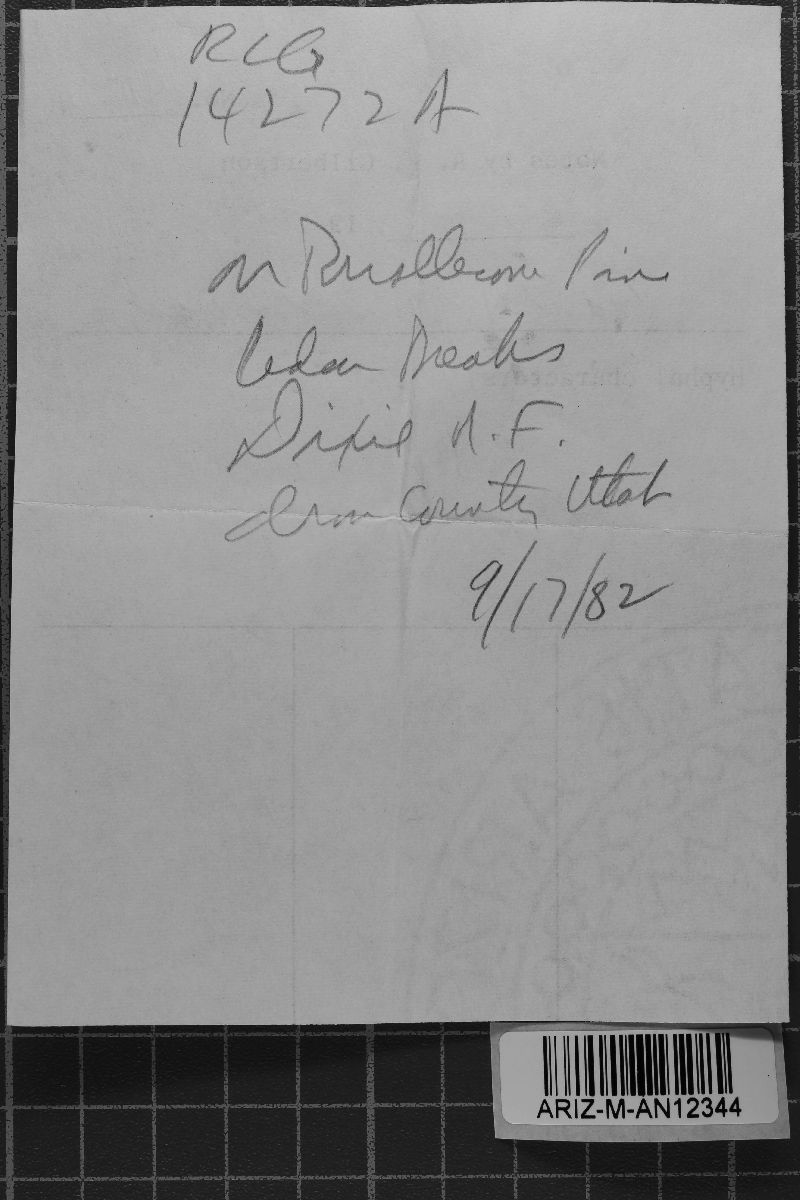 RLG
14272A
on Bristlecone Pine
Cedar Breaks
Dixie N.F.
Iron County Utah
9/17/82
ARIZ-M-AN12344